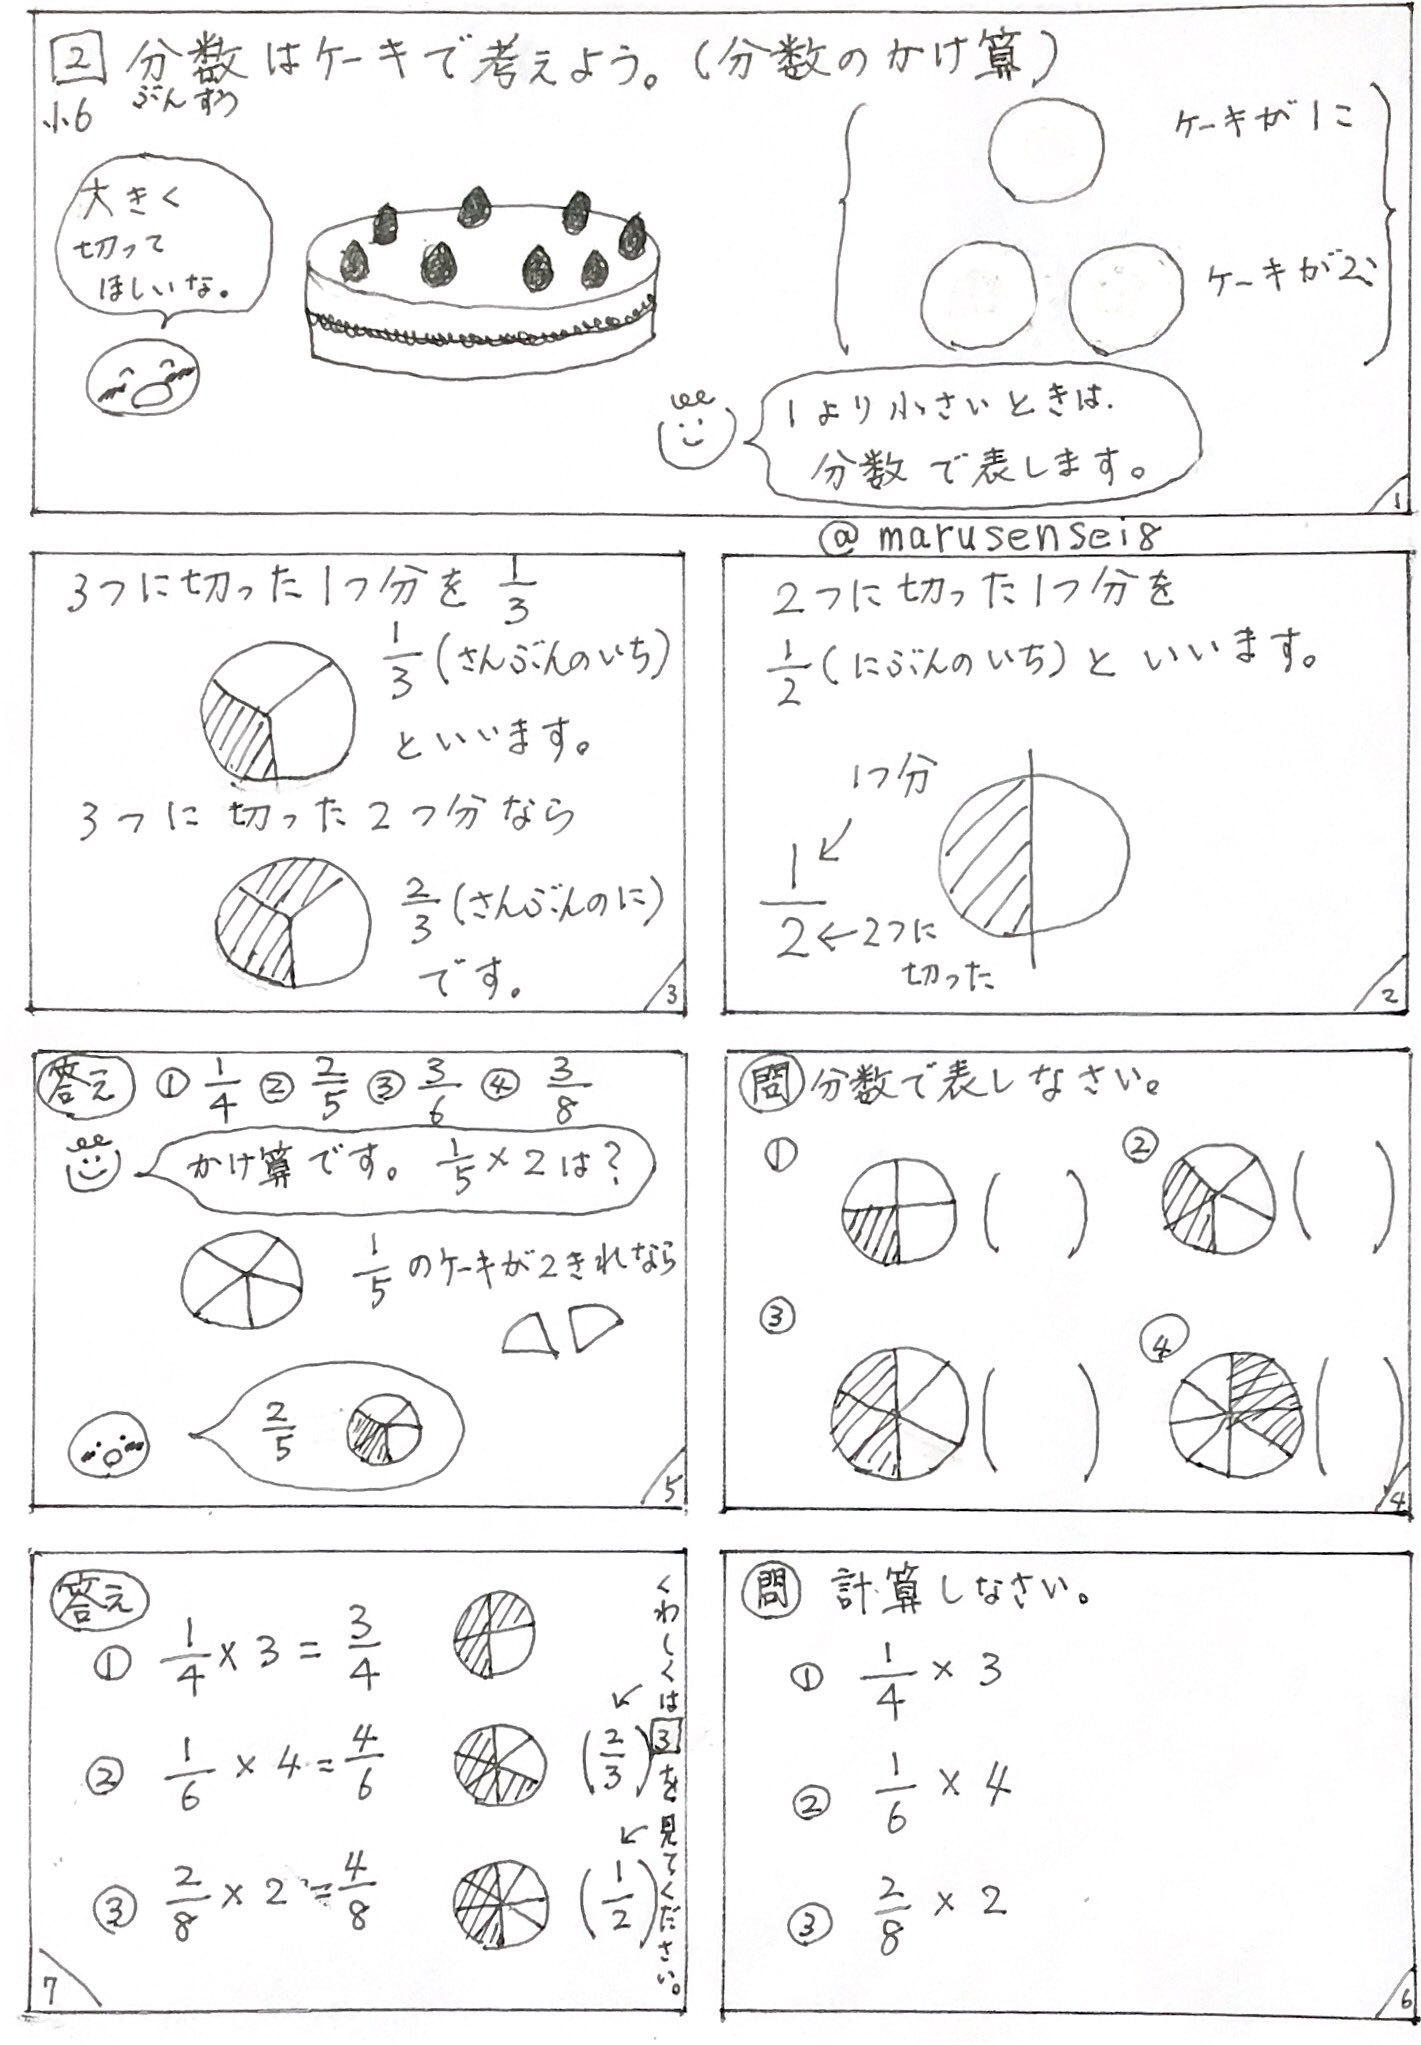 2 分数はケーキで考えよう。(分数のかけ算)
ぶんすう
小6
大きく
切って
ほしいな。
ケーキが1こ
ケーキが2こ
1より小さいときは、
分数で表します。
1
@marusensei8
2つに切った1つ分を
1/2(にぶんのいち)といいます。
1つ分
1/2 ←2つに
切った
2
3つに切った1つ分を 1/3
1/3(さんぶんのいち)
といいます。
3つに切った2つ分なら
2/3(さんぶんのに)
です。
3
問 分数で表しなさい。
① ( ) ② ( )
③ ( ) ④ ( )
4
答え ① 1/4 ② 2/5 ③ 3/6 ④ 3/8
かけ算です。 1/5×2は?
1/5のケーキが2きれなら
2/5
5
問 計算しなさい。
① 1/4 × 3
② 1/6 × 4
③ 2/8 × 2
6
答え
① 1/4 × 3 = 3/4
② 1/6 × 4 = 4/6 (2/3)
③ 2/8 × 2 = 4/8 (1/2)
くわしくは3を見てください。
7